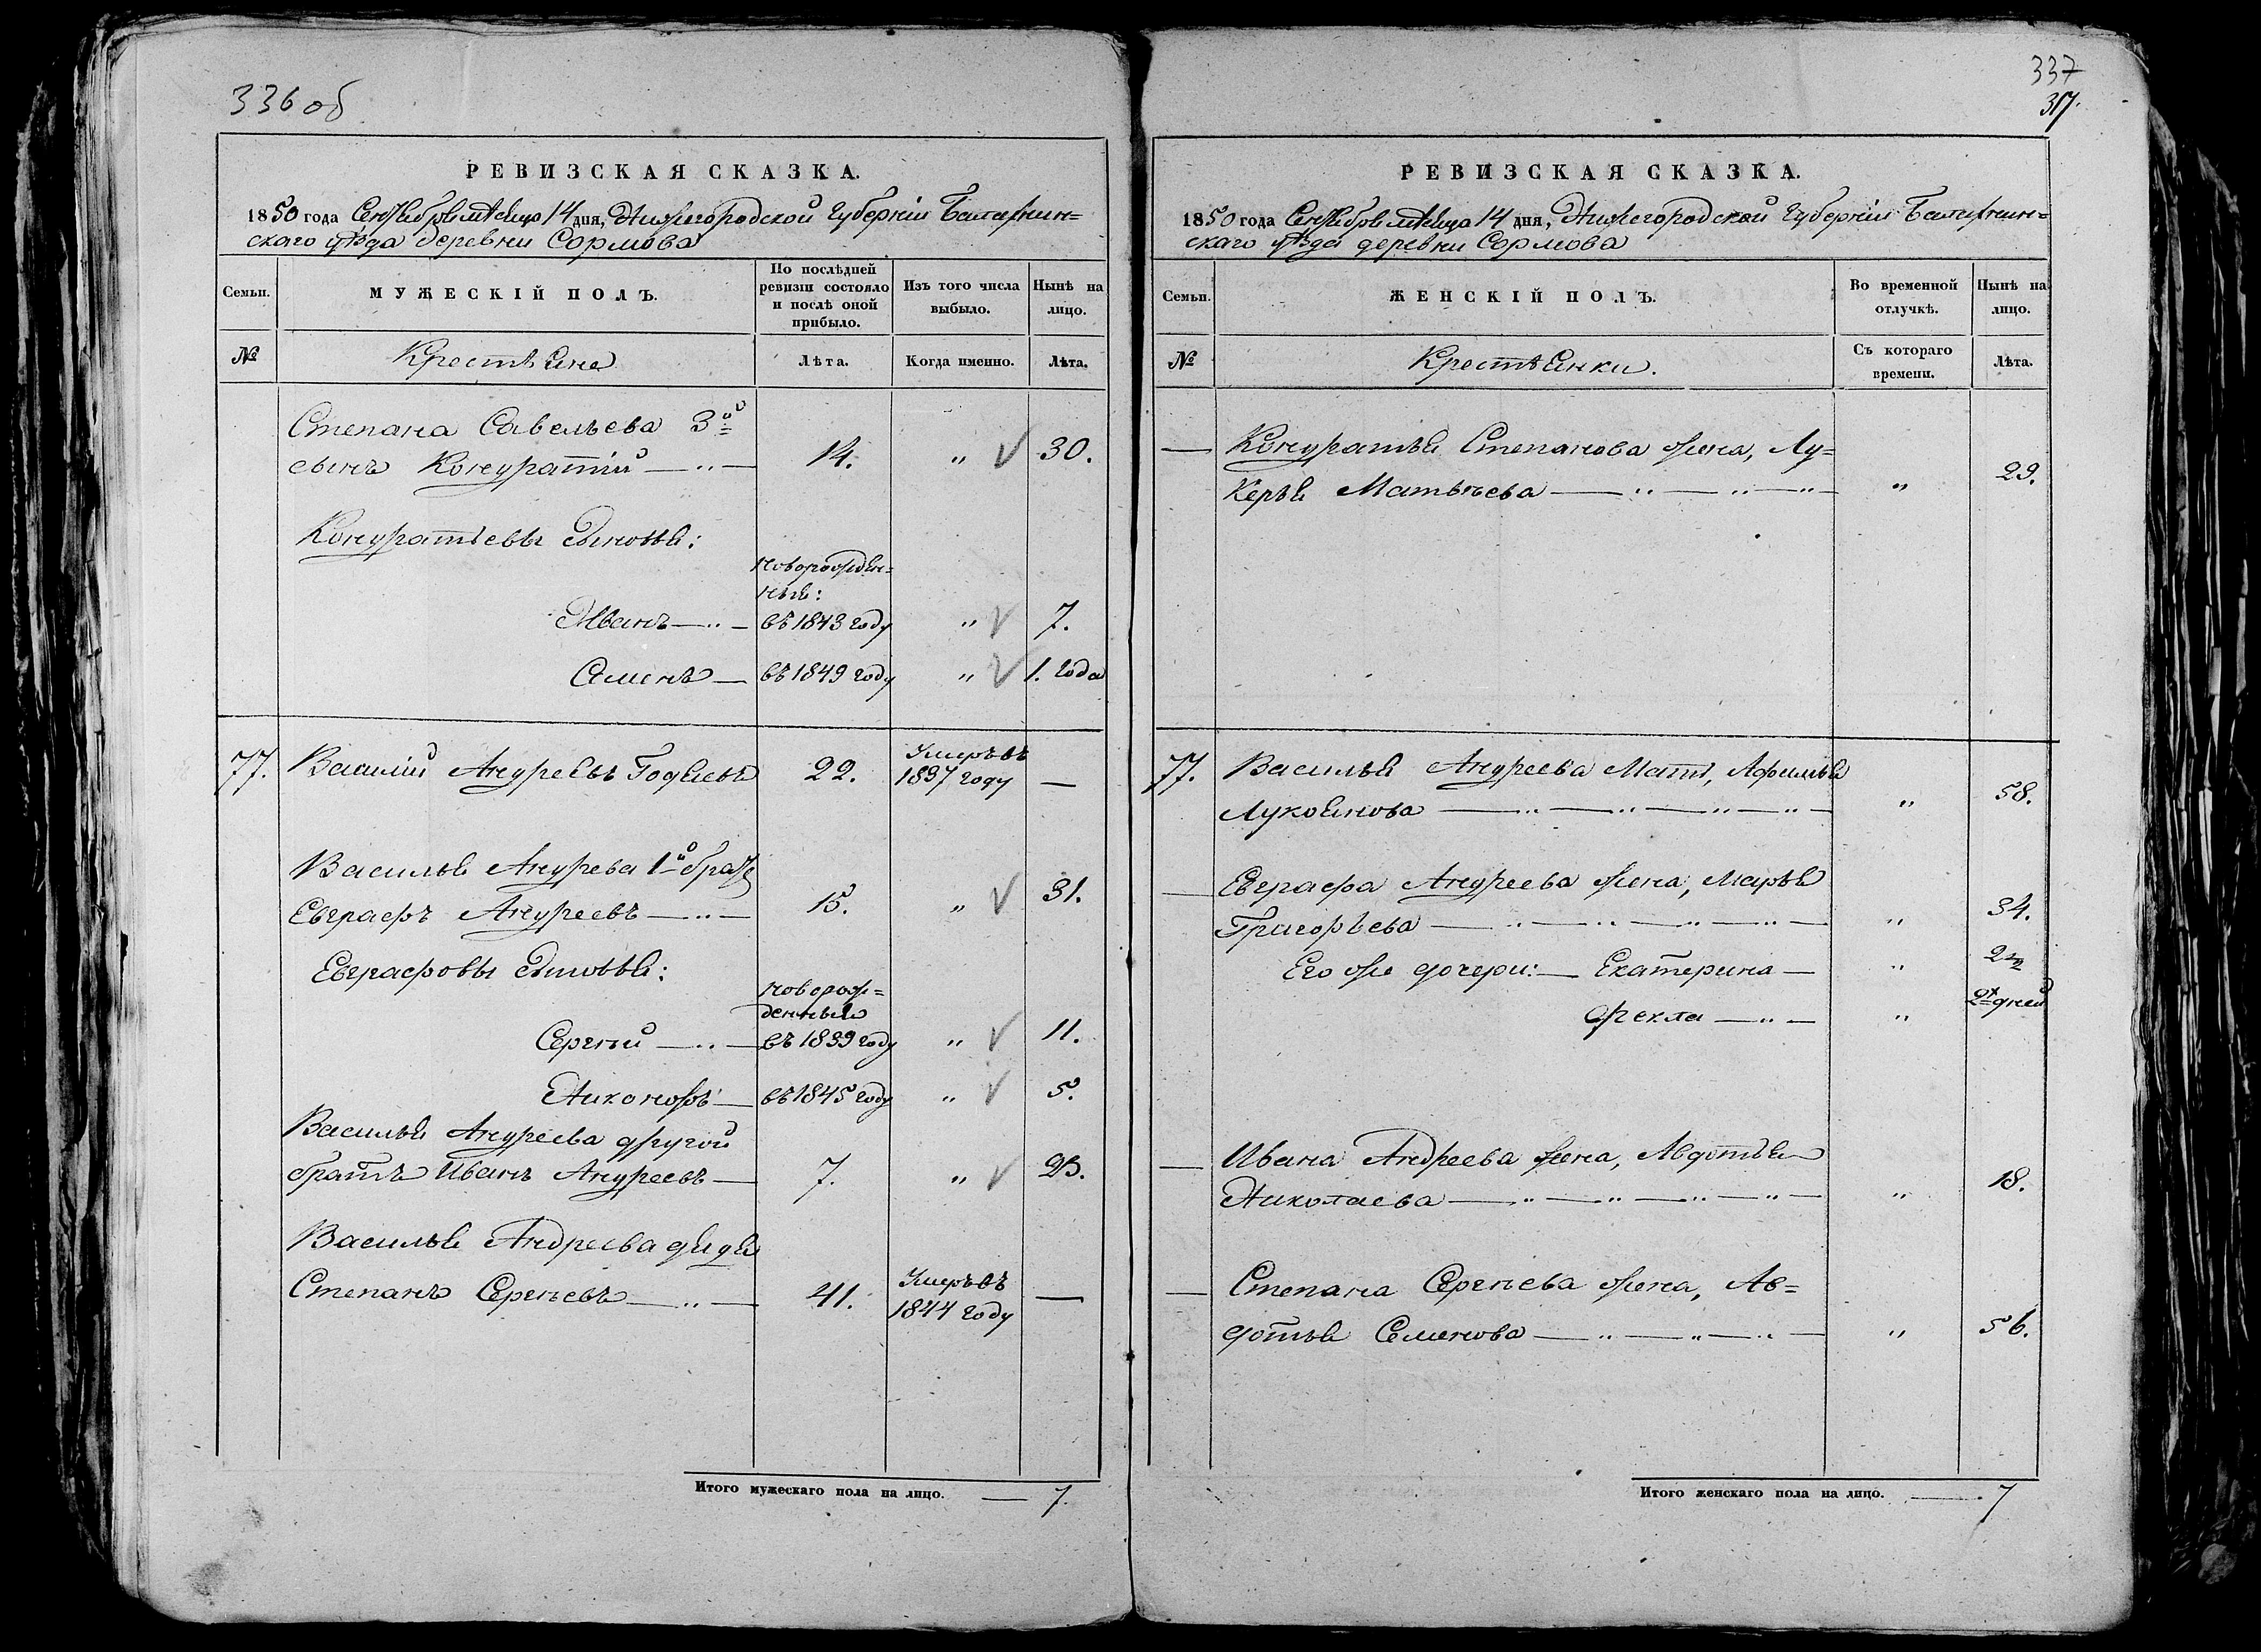 336 об
РЕВИЗСКАЯ СКАЗКА.
1850 года Сентября месяца 14 дня, Нижегородской Губернии Балахнин=
скаго уѣзда деревни Сормова
Семьи.
МУЖЕСКІЙ ПОЛЪ.
По послѣдней ревизіи состояло и послѣ оной прибыло.
Изъ того числа выбыло.
Нынѣ на лицо.
№
Крестьяне
Лѣта.
Когда именно.
Лѣта.
Степана Савельева 3й
сынъ Кондратій 14. " 30.
Кондратьевы сыновья:
новорожден=
ные:
Иванъ въ 1843 году " 7.
Семенъ въ 1849 году " 1. года
77. Василій Андреевъ Годяевъ 22. Умеръ въ 1837 году —
Василья Андрева 1й братъ
Евграфъ Андреевъ 15. " 31.
Евграфовы сыновья:
новорож=
денные
Сергѣй въ 1839 году " 11.
Никоноръ въ 1845 году " 5.
Василья Андреева другой
братъ Иванъ Андреевъ 7. " 23.
Василья Андреева дядя
Степанъ Сергѣевъ 41. Умеръ въ 1844 году —
Итого мужескаго пола на лицо. — 7.
337
317.
РЕВИЗСКАЯ СКАЗКА.
1850 года Сентября месяца 14 дня, Нижегородской Губерніи Балахнин=
скаго уѣзда деревни Сормова
Семьи.
ЖЕНСКІЙ ПОЛЪ.
Во временной отлучкѣ.
Нынѣ на лицо.
№
Крестьянки.
Съ котораго времени.
Лѣта.
— Кондратья Степанова жена, Лу=
керья Матвѣева " 29.
77. Василья Андреева Мать, Афимья
Лукоянова " 58.
— Евграфа Андреева жена, Марья
Григорьева " 34.
Его же дочери: — Екатерина — "
Фекла " дней
— Ивана Андреева жена, Авдотья
Николаева " 18.
— Степана Сергѣева жена, Ав=
дотья Семенова " 56.
Итого женскаго пола на лицо. — 7